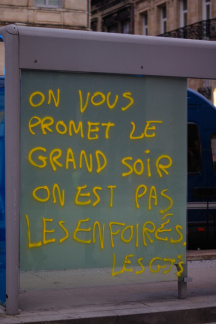 ON VOUS
PROMET LE
GRAND SOIR
ON EST PAS
LES ENFOIRÉS.
LES GJS